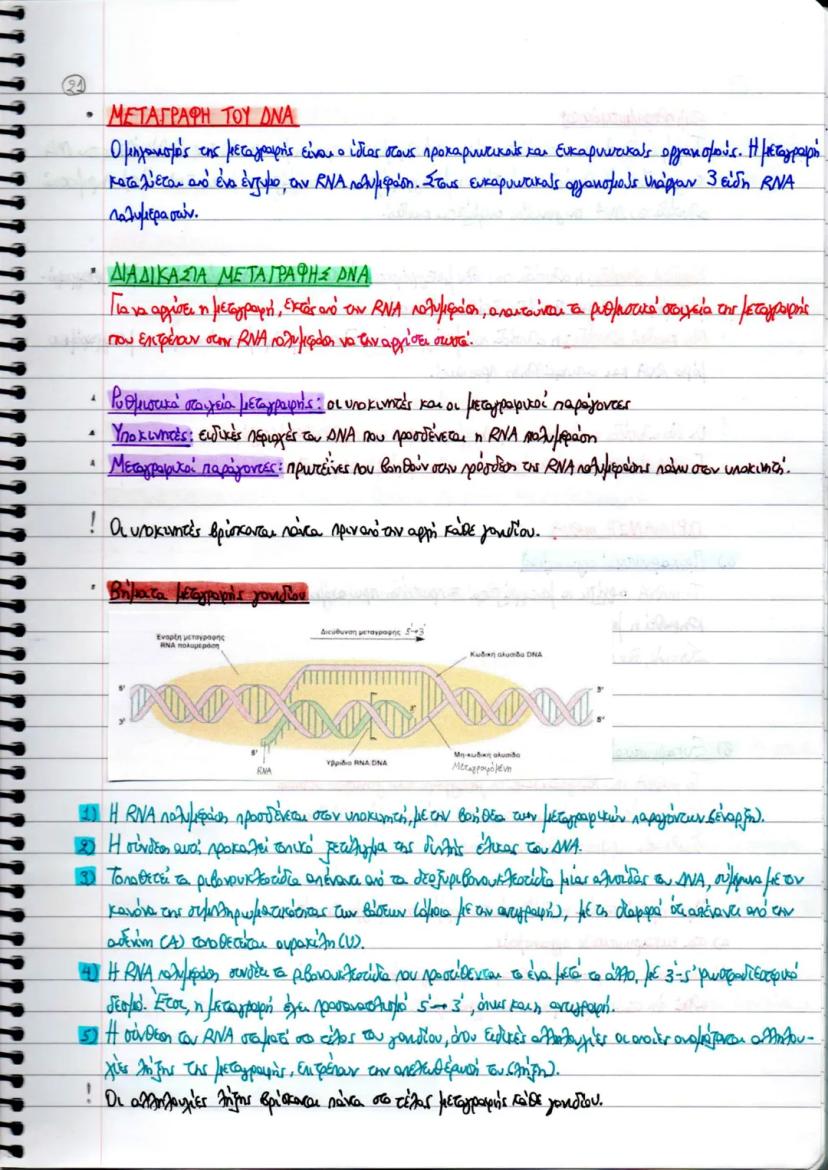 21
• ΜΕΤΑΓΡΑΦΗ ΤΟΥ DNA
Ο μηχανισμός της μεταγραφής είναι ο ίδιος στους προκαρυωτικούς και ευκαρυωτικούς οργανισμούς. Η μεταγραφή
καταλύεται από ένα ένζυμο, την RNA πολυμεράση. Στους ευκαρυωτικούς οργανισμούς υπάρχουν 3 είδη RNA
πολυμερασών.
• ΔΙΑΔΙΚΑΣΙΑ ΜΕΤΑΓΡΑΦΗΣ DNA
Για να αρχίσει η μεταγραφή, εκτός από την RNA πολυμεράση, απαιτούνται τα ρυθμιστικά στοιχεία της μεταγραφής
που επιτρέπουν στην RNA πολυμεράση να την αρχίσει σωστά.
• Ρυθμιστικά στοιχεία μεταγραφής: οι υποκινητές και οι μεταγραφικοί παράγοντες
• Υποκινητές: ειδικές περιοχές του DNA που προσδένεται η RNA πολυμεράση
• Μεταγραφικοί παράγοντες: πρωτεΐνες που βοηθούν στην πρόσδεση της RNA πολυμεράσης πάνω στον υποκινητή.
! Οι υποκινητές βρίσκονται πάντα πριν από την αρχή κάθε γονιδίου.
• Βήματα μεταγραφής γονιδίου
Έναρξη μεταγραφής
RNA πολυμεράση
Διεύθυνση μεταγραφής 5'→3'
Κωδική αλυσίδα DNA
5'
3'
3'
3'
5'
5'
RNA
Υβρίδιο RNA/DNA
Μη-κωδική αλυσίδα
Μεταγραφόμενη
1) Η RNA πολυμεράση προσδένεται στον υποκινητή, με την βοήθεια των μεταγραφικών παραγόντων (έναρξη).
2) Η σύνδεση αυτή προκαλεί τοπικό ξετύλιγμα της διπλής έλικας του DNA.
3) Τοποθετεί τα ριβονουκλεοτίδια απέναντι από τα δεοξυριβονουκλεοτίδια μίας αλυσίδας του DNA, σύμφωνα με τον
κανόνα της συμπληρωματικότητας των βάσεων (όμοια με την αντιγραφή), με τη διαφορά ότι απέναντι από την
αδενίνη (Α) τοποθετείται ουρακίλη (U).
4) Η RNA πολυμεράση συνδέει τα ριβονουκλεοτίδια που προστίθενται το ένα μετά το άλλο, με 3'-5' φωσφοδιεστερικό
δεσμό. Έτσι, η μεταγραφή έχει προσανατολισμό 5'→3', όπως και η αντιγραφή.
5) Η σύνθεση του RNA σταματά στο τέλος του γονιδίου, όπου ειδικές αλληλουχίες οι οποίες ονομάζονται αλληλου-
χίες λήξης της μεταγραφής, επιτρέπουν την απελευθέρωσή του (λήξη).
! Οι αλληλουχίες λήξης βρίσκονται πάντα στο τέλος μεταγραφής κάθε γονιδίου.